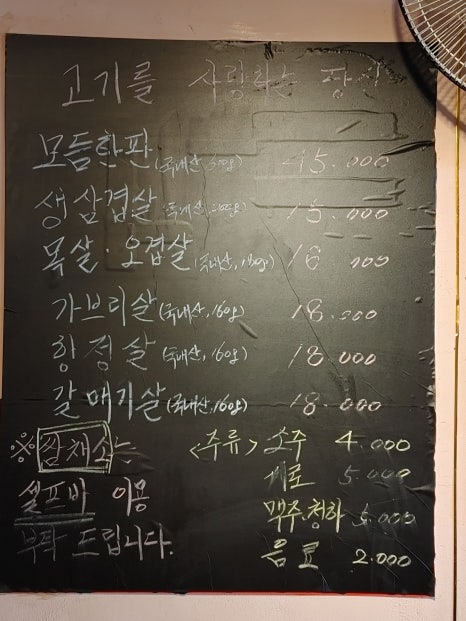 고기를 사랑하는 당신
모듬한판 (국내산, 500g) 45.000
생삼겹살 (국내산, 200g) 15.000
목살·오겹살 (국내산, 180g) 16.000
가브리살 (국내산, 160g) 18.000
항정살 (국내산, 160g) 18.000
갈매기살 (국내산, 160g) 18.000
※쌈채소는
셀프바 이용
부탁 드립니다.
<주류> 소주 4.000
새로 5.000
맥주.청하 5.000
음료 2.000